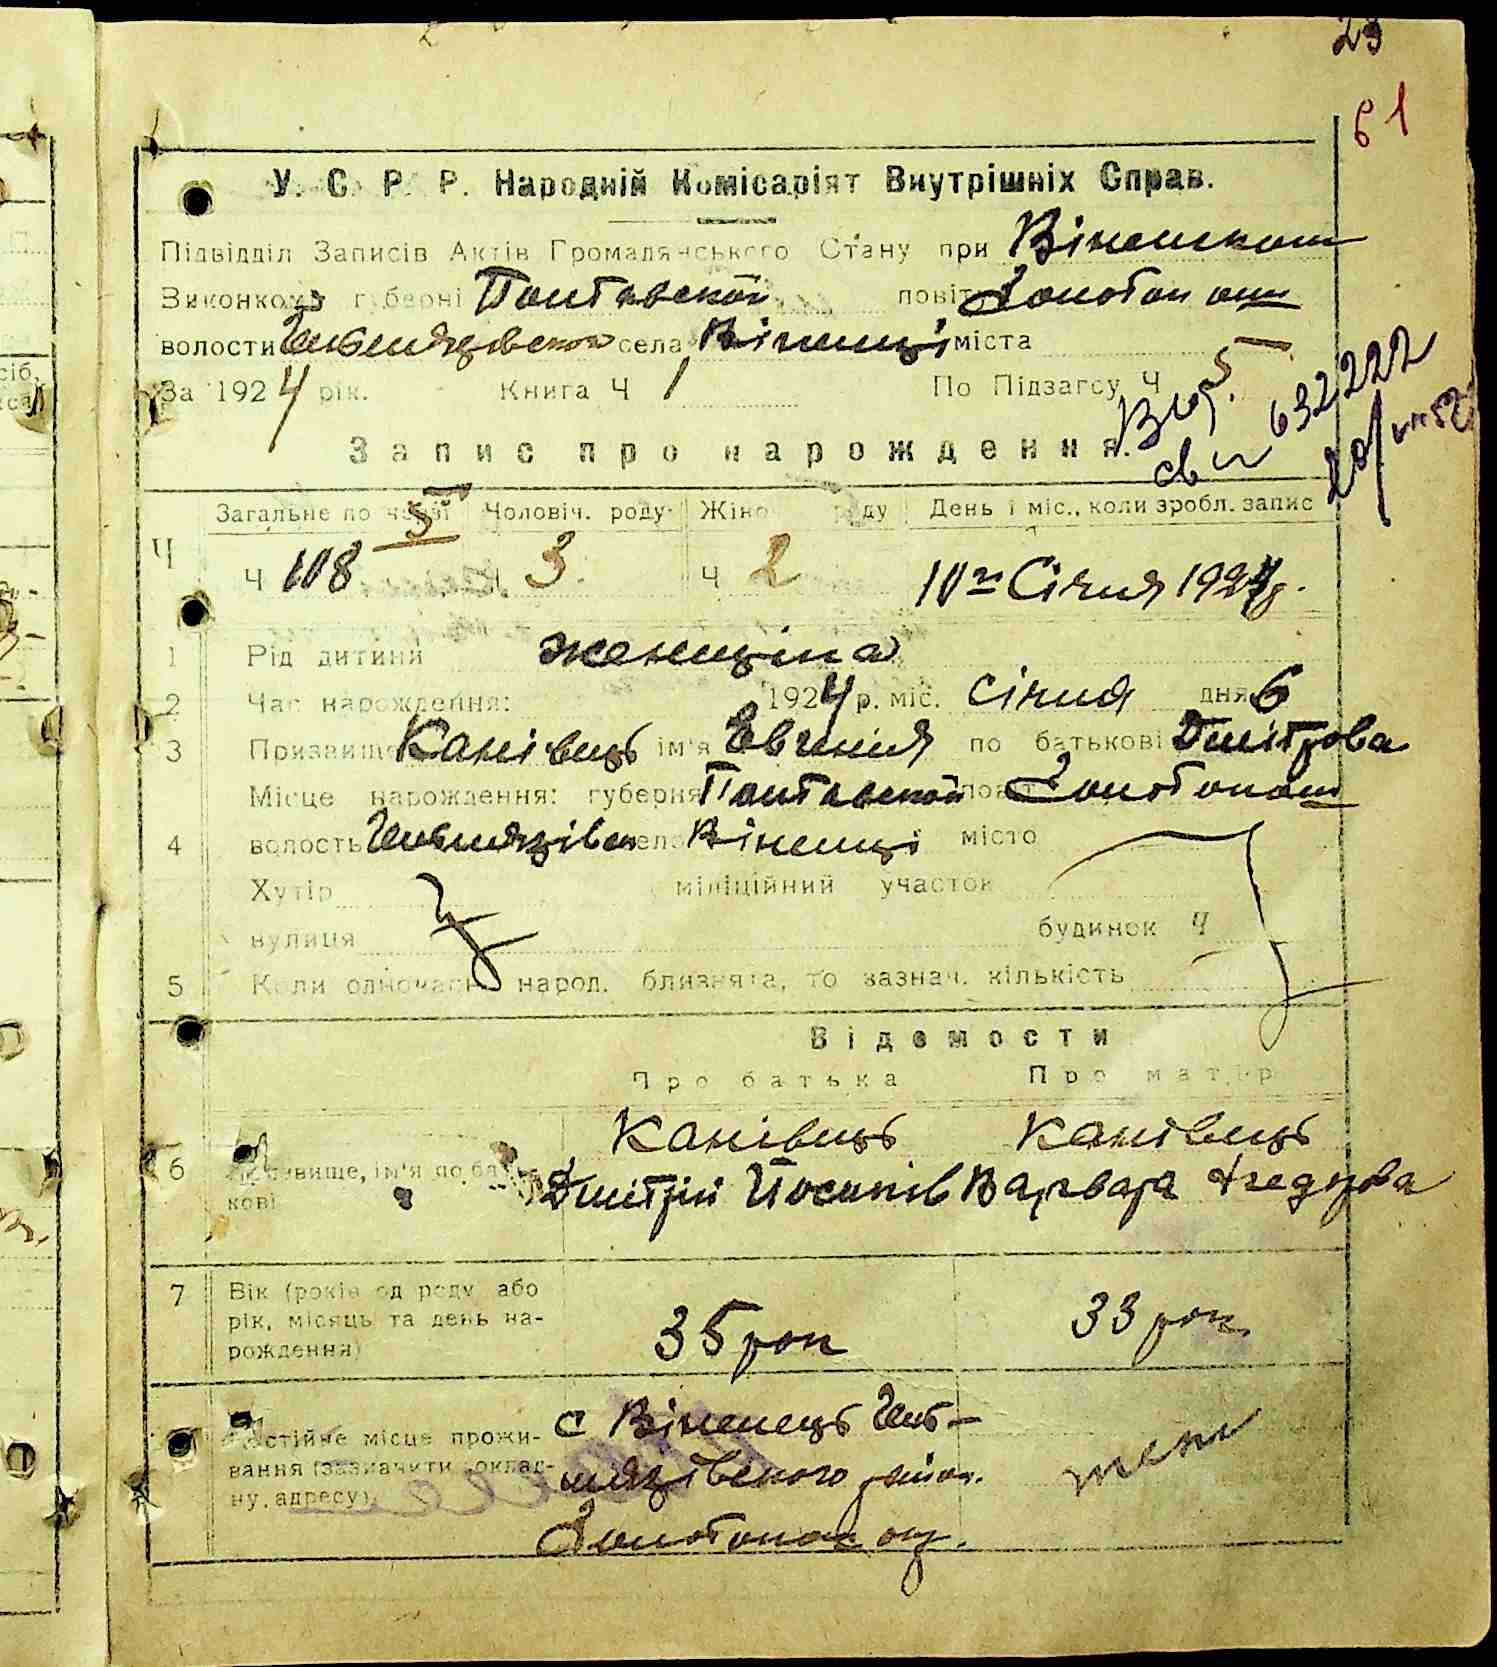 23
61
У. С. Р. Р. Народній Комісаріят Внутрішніх Справ.
Підвідділ Записів Актів Громадянського Стану при Віненським
Виконкомі губерні Полтавской повіт Золотон окр
волости села Вінинці міста
За 1924 рік. Книга Ч 1 По Підзагсу Ч 5
632222
Запис про нарождення.
Загальне по черзі Чоловіч. роду Жіноч. роду День і міс., коли зробл. запис
5
Ч Ч 108 3. Ч 2 10го Січня 1924 р.
1 Рід дитини женщіна
2 Час нарождення: 1924 р. міс. січня дня 6
3 Призвище Канівець ім'я Евгинія по батькові Дмітрова
Місце нарождення: губерня Полтавской повіт Золотонош
4 волость село Вінинці місто
Хутір міліційний участок
вулиця будинок Ч
5 Коли одночасн. народ. близнята, то зазнач. кількість
Відомости
Про батька Про матір
Канівець Канівець
6 Призвище, ім'я по бать-
кові Дмітрій Йосипів Варвара Хведорова
7 Вік (років од роду або
рік, місяць та день на-
рождення) 35 рок 33 рок
Постійне місце прожи-
вання (зазначити доклад-
ну адресу)
с Віненець Гель-
мязівського район.
Золотонос. окр.
теж